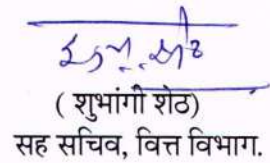 ( शुभांगी शेठ)
सह सचिव, वित्त विभाग.